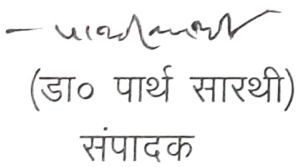 (डा० पार्थ सारथी)
संपादक